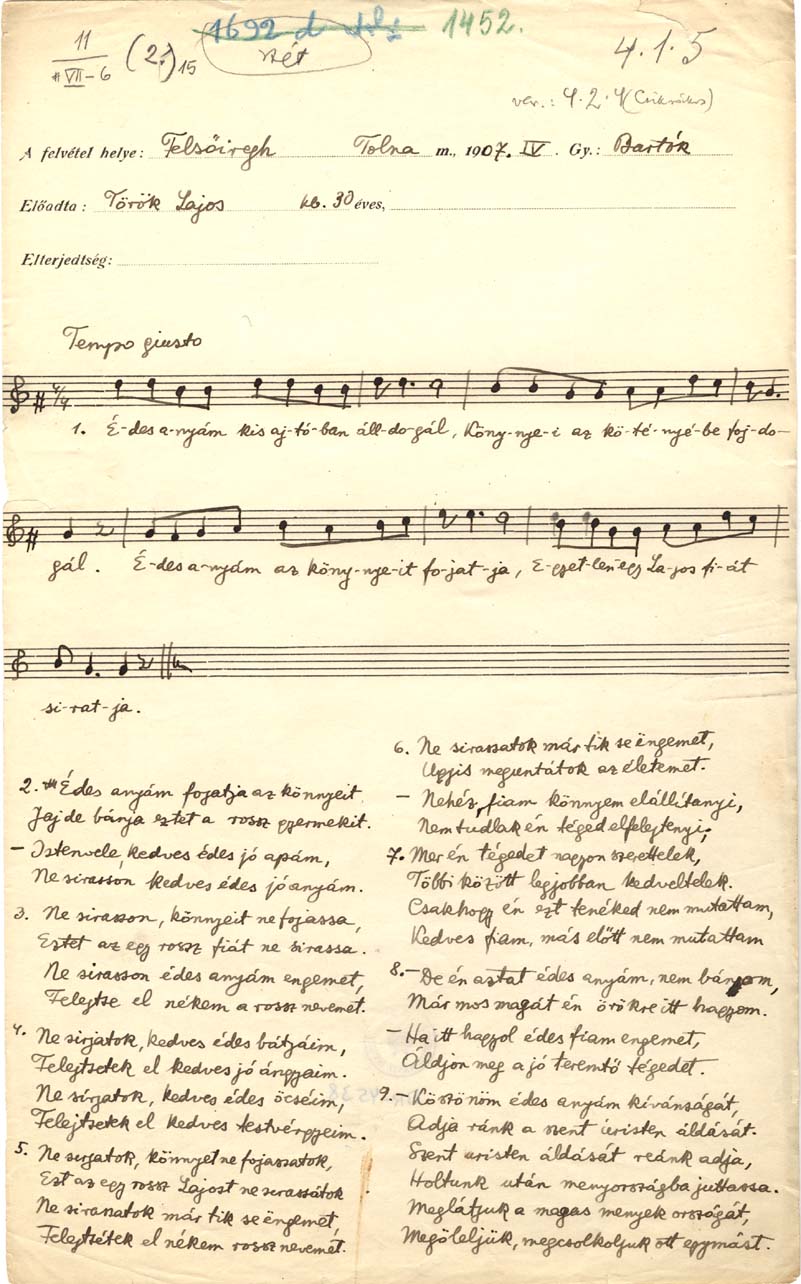 11
VII-6
(2.) 15
1692 d
1452.
4.1.5
var.: 4.2.4
A felvétel helye: Felsőiregh Tolna m., 1907. IV. Gy.: Bartók
Előadta: Török Lajos kb. 30 éves,
Elterjedtség:
Tempo giusto
1. É-des a-nyám kis aj-tó-ban áll-do-gál, Köny-nye-i az kö-té-nyé-be foj-do-
gál. É-des a-nyám az köny-nye-it fo-jat-ja, E-gyet-len-egy La-jos fi-át
si-rat-ja.
2. Édes anyám fojatja az könnyeit,
Jaj de bánja eztet a rossz gyermekit.
- Isten vele, kedves édes jó apám,
Ne sirasson kedves édes jó anyám.
3. Ne sirasson, könnyeit ne fojassa,
Eztet az egy rossz fiát ne sirassa.
Ne sirasson édes anyám engemet,
Felejtse el nékem a rossz nevemet.
4. Ne sirjatok, kedves édes bátyáim,
Felejtsetek el kedves jó ángyaim.
Ne sírjatok, kedves édes öcséim,
Felejtsetek el kedves testvérgyeim.
5. Ne sirjatok, könnyet ne fojasszatok,
Ezt az egy rossz Lajost ne sirassátok
Ne sirassatok már tik se ëngemet,
Felejtsétek el nékem rossz nevemet.
6. Ne sirassatok már tik se ëngemet,
Ugyis meguntátok az életemet.
- Nehéz, fiam könnyem elállítanyi,
Nem tudlak én téged elfelejtenyi;
7. Mer én tégedet nagyon szerettelek,
Többi között legjobban kedveltelek.
Csakhogy én ezt tenéked nem mutattam,
Kedves fiam, más előtt nem mutattam
8. - De én aztat édes anyám, nem bánom,
Már mos magát én örökre itt hagyom.
- Ha itt hagyol édes fiam engemet,
Áldjon meg a jó teremtő tégedet.
9. - Köszönöm édes anyám kívánságát,
Adja ránk a szent úristen áldását.
Szent uristen áldását reánk adja,
Holtunk után menyországba juttassa.
Meglátjuk a magas menyek országát,
Megöleljük, megcsolkoljuk ott egymást.